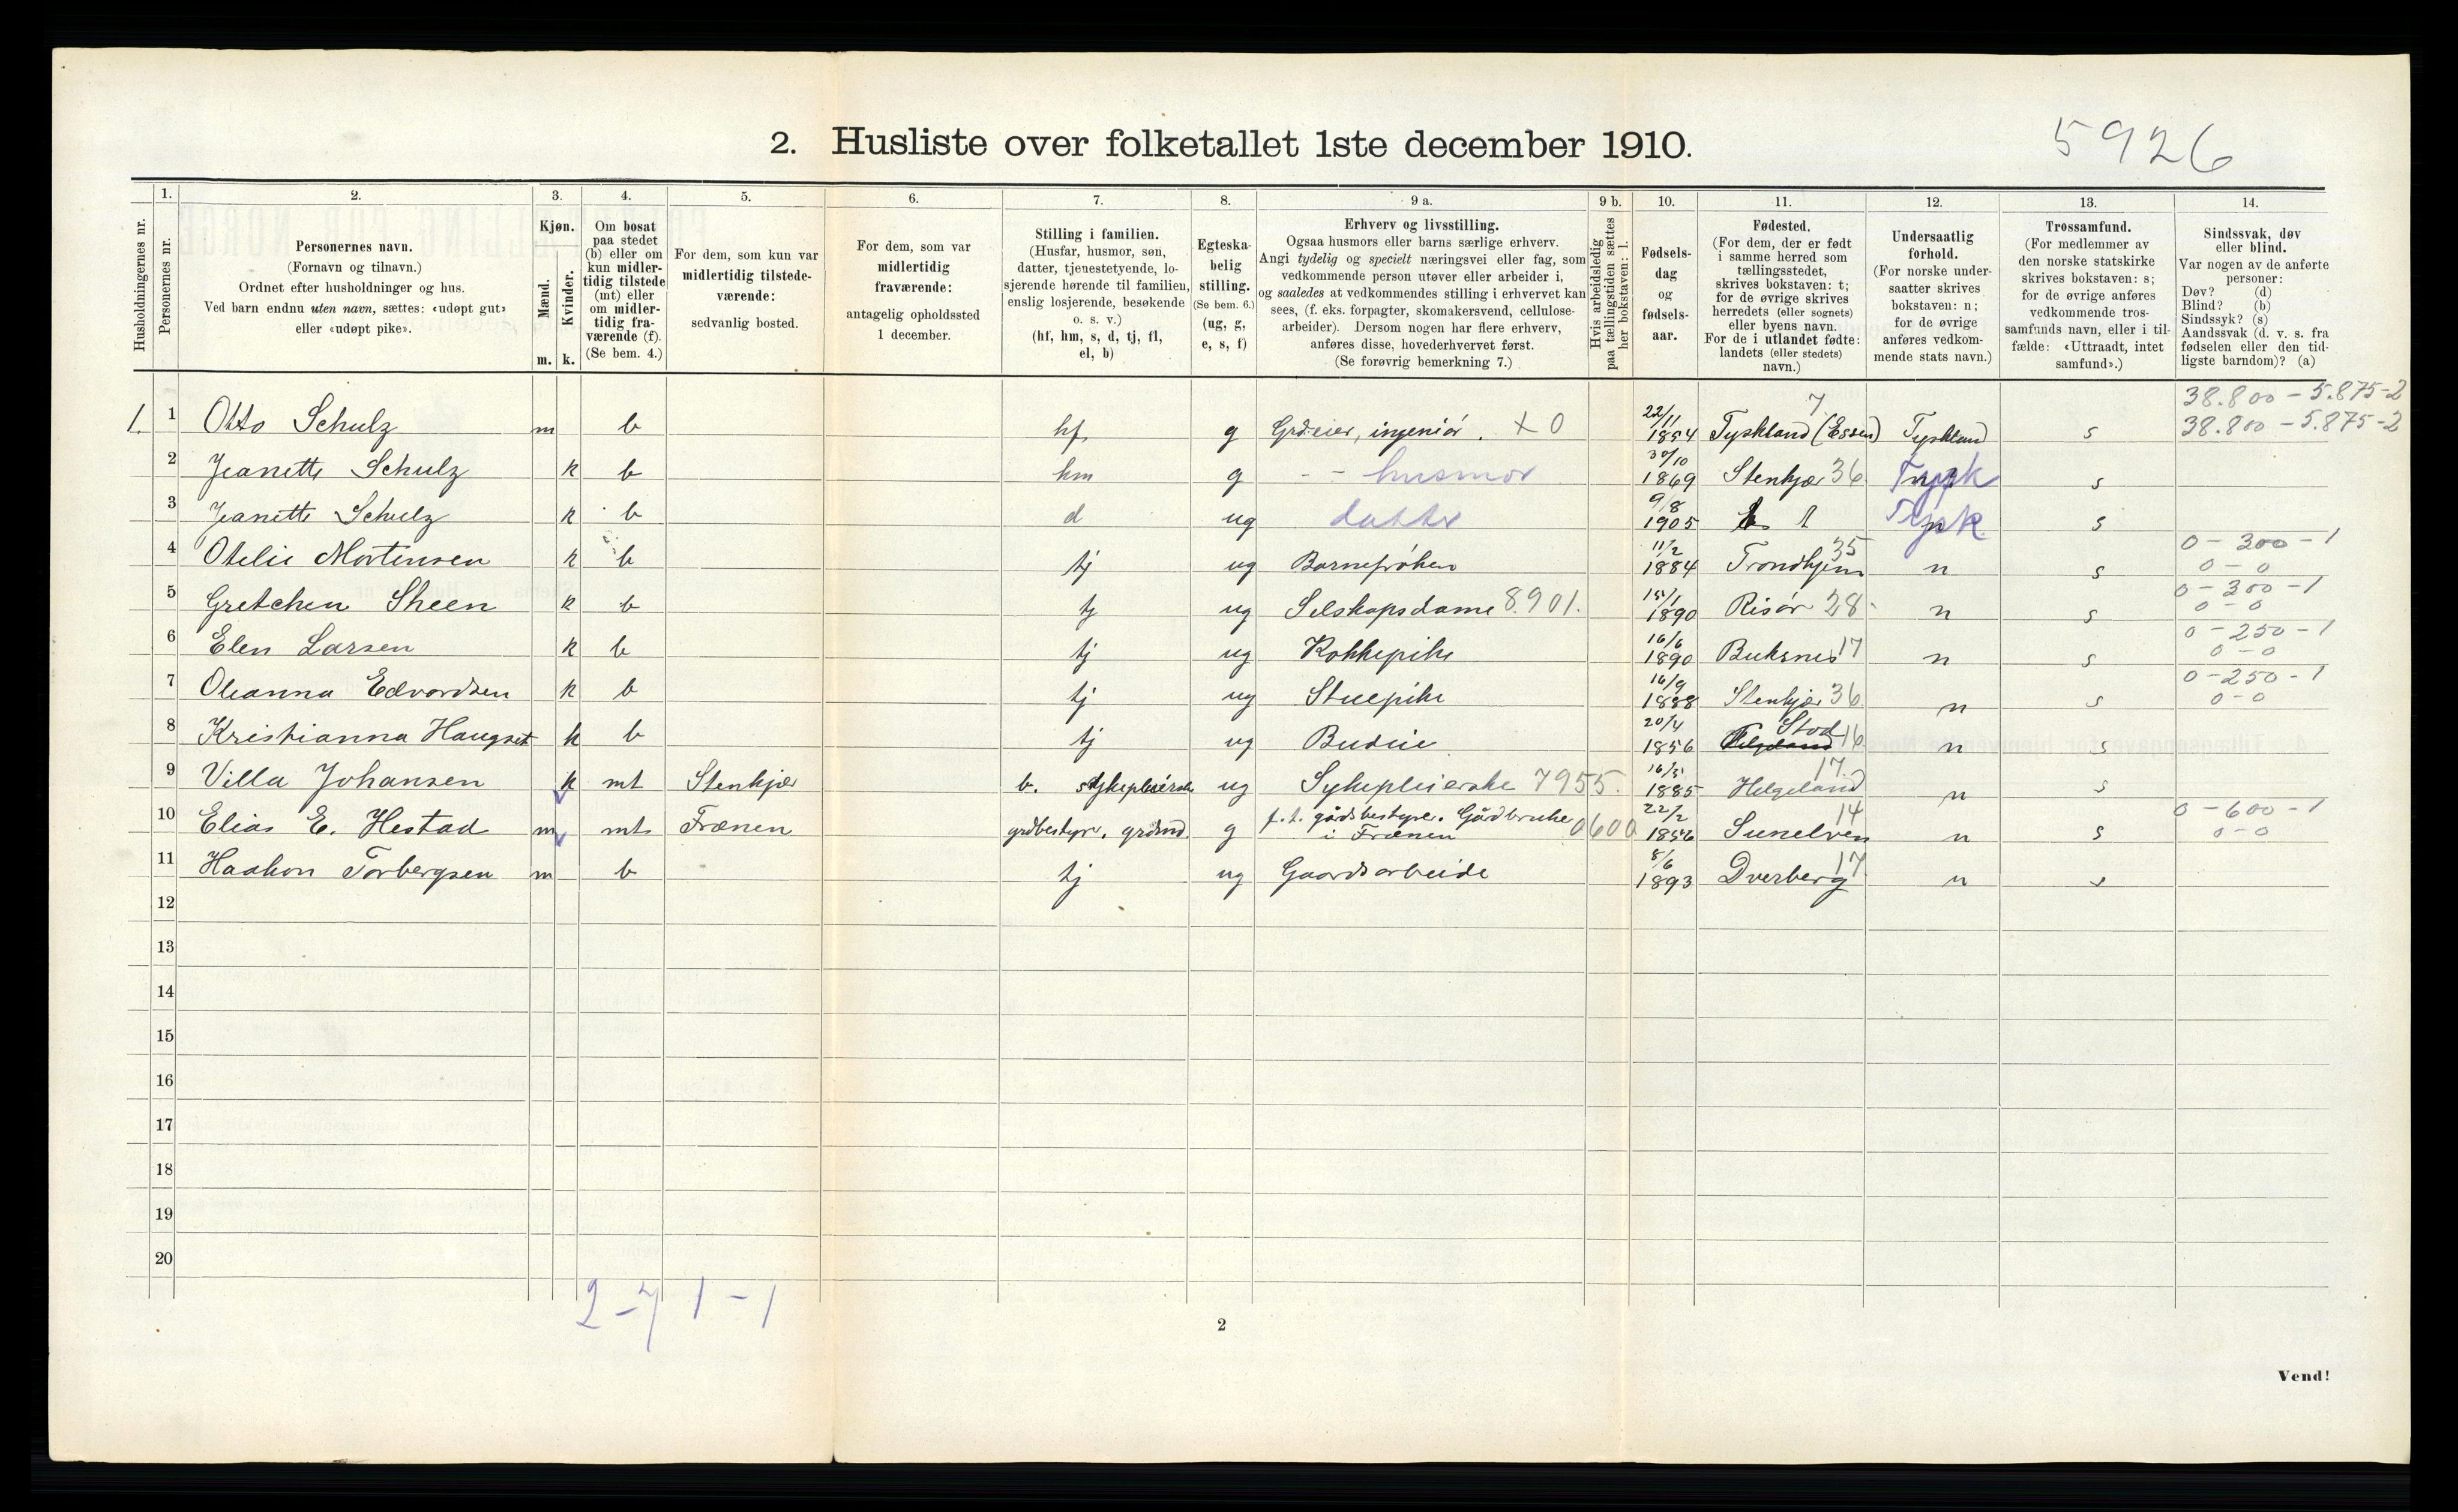 2. Husliste over folketallet 1ste december 1910.
5926
Husholdningernes nr.
1. Personernes nr.
2. Personernes navn.
(Fornavn og tilnavn.)
Ordnet efter husholdninger og hus.
Ved barn endnu uten navn, sættes: «udøpt gut»
eller «udøpt pike».
3. Kjøn.
Mænd. Kvinder.
m. k.
4. Om bosat
paa stedet
(b) eller om
kun midler-
tidig tilstede
(mt) eller
om midler-
tidig fra-
værende (f).
(Se bem. 4.)
5. For dem, som kun var
midlertidig tilstede-
værende:
sedvanlig bosted.
6. For dem, som var
midlertidig
fraværende:
antagelig opholdssted
1 december.
7. Stilling i familien.
(Husfar, husmor, søn,
datter, tjenestetyende, lo-
sjerende hørende til familien,
enslig losjerende, besøkende
o. s. v.)
(hf, hm, s, d, tj, fl,
el, b)
8. Egteska-
belig
stilling.
(Se bem. 6.)
(ug, g,
e, s, f)
9 a. Erhverv og livsstilling.
Ogsaa husmors eller barns særlige erhverv.
Angi tydelig og specielt næringsvei eller fag, som
vedkommende person utøver eller arbeider i,
og saaledes at vedkommendes stilling i erhvervet kan
sees, (f. eks. forpagter, skomakersvend, cellulose-
arbeider). Dersom nogen har flere erhverv,
anføres disse, hovederhvervet først.
(Se forøvrig bemerkning 7.)
9 b. Hvis arbeidsledig
paa tællingstiden sættes
her bokstaven: l.
10. Fødsels-
dag
og
fødsels-
aar.
11. Fødested.
(For dem, der er født
i samme herred som
tællingsstedet,
skrives bokstaven: t;
for de øvrige skrives
herredets (eller sognets)
eller byens navn.
For de i utlandet fødte:
landets (eller stedets)
navn.)
12. Undersaatlig
forhold.
(For norske under-
saatter skrives
bokstaven: n;
for de øvrige
anføres vedkom-
mende stats navn.)
13. Trossamfund.
(For medlemmer av
den norske statskirke
skrives bokstaven: s;
for de øvrige anføres
vedkommende tros-
samfunds navn, eller i til-
fælde: «Uttraadt, intet
samfund».)
14. Sindssvak, døv
eller blind.
Var nogen av de anførte
personer:
Døv? (d)
Blind? (b)
Sindssyk? (s)
Aandssvak (d. v. s. fra
fødselen eller den tid-
ligste barndom)? (a)
38.800 - 5.875-2
1. 1 Otto Schulz m b hf. g Grdeier, ingeniør. x 0 22/11 1854 Tyskland (Essen) 7 Tyskland s 38.800 - 5.875-2
2 Jeanette Schulz k b hm g - - husmor 30/10 1869 Stenkjær 36 Tysk s
3 Jeanette Schulz k b d ug datter 9/8 1905 t Tysk s
4 Otelie Mortensen k b tj ug Barnefrøken 11/2 1884 Trondhjem 35 n s 0 - 300 - 1 0-0
5 Gretchen Sheen k b tj ug Selskapsdame 8901. 15/1 1890 Risør 28 n s 0 - 300 - 1 0-0
6 Elen Larsen k b tj ug Kokkepike 16/6 1890 Buksnes 17 n s 0 - 250 - 1 0-0
7 Oleanna Edvardsen k b tj ug Stuepike 16/9 1888 Stenkjær 36 n s 0 - 250 - 1 0-0
8 Kristianna Haugset k b tj ug Budeie 20/4 1856 Helgeland Stod 16 n s
9 Villa Johansen k mt Stenkjær b. sykepleierske ug Sykepleierske 7955. 16/5 1885 Helgeland 17 n s
10 Elias E. Hestad m mt Frænen grdbestyr. grdmd. g f. t. gårdsbestyrer. Gårdbruker i Frænen 0600 22/2 1856 Sunelven 14 n s 0 - 600 - 1 0-0
11 Haakon Torbergsen m b tj ug Gaardsarbeide 5/6 1893 Dverberg 17 n s
12
13
14
15
16
17
18
19
20
2-7 1-1
2
Vend!